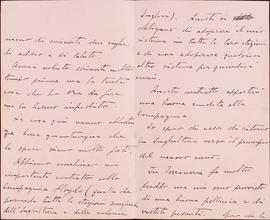 meno di scriverti due righe
di addio e di saluto.
Avrei voluto scriverti molto
tempo prima ma le tante
cose che ho ora da fare
me lo hanno impedito.
Le cose qui vanno
bene quantunque che
le spese siano molto forti.
Abbiamo concluso un
importante contratto colla
Compagnia Lloyds (quella che
possiede tutte le stazioni
dell'Inghilterra e delle colonie
Inglesi). Questi si
obbligano di adoperare il mio
sistema in tutte le loro stazioni
e di non adoperare qualsiasi
altro sistema per quindici
anni.
Questo contratto apporterà
una buona rendita alla
Compagnia.
Io spero di essere di ritorno
in Inghilterra verso il principio
del nuovo anno.
In Terranova fa molto
freddo ma mi sono provvisto
di una buona pelliccia e di
vestiti pesanti. Spero che la